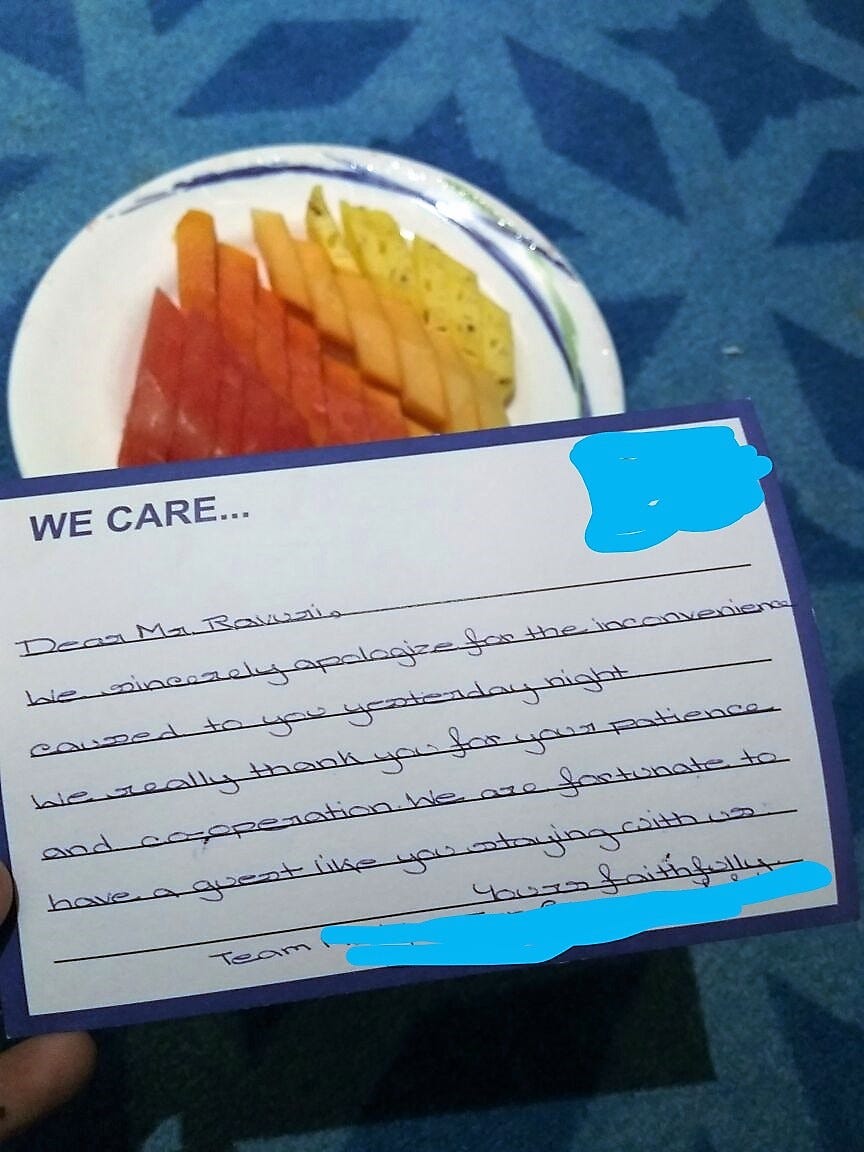 WE CARE...
Dear Mr. Ravuri,
We sincerely apologize for the inconvenience
caused to you yesterday night
We really thank you for your patience
and co-operation. We are fortunate to
have a guest like you staying with us.
Yours faithfully
Team